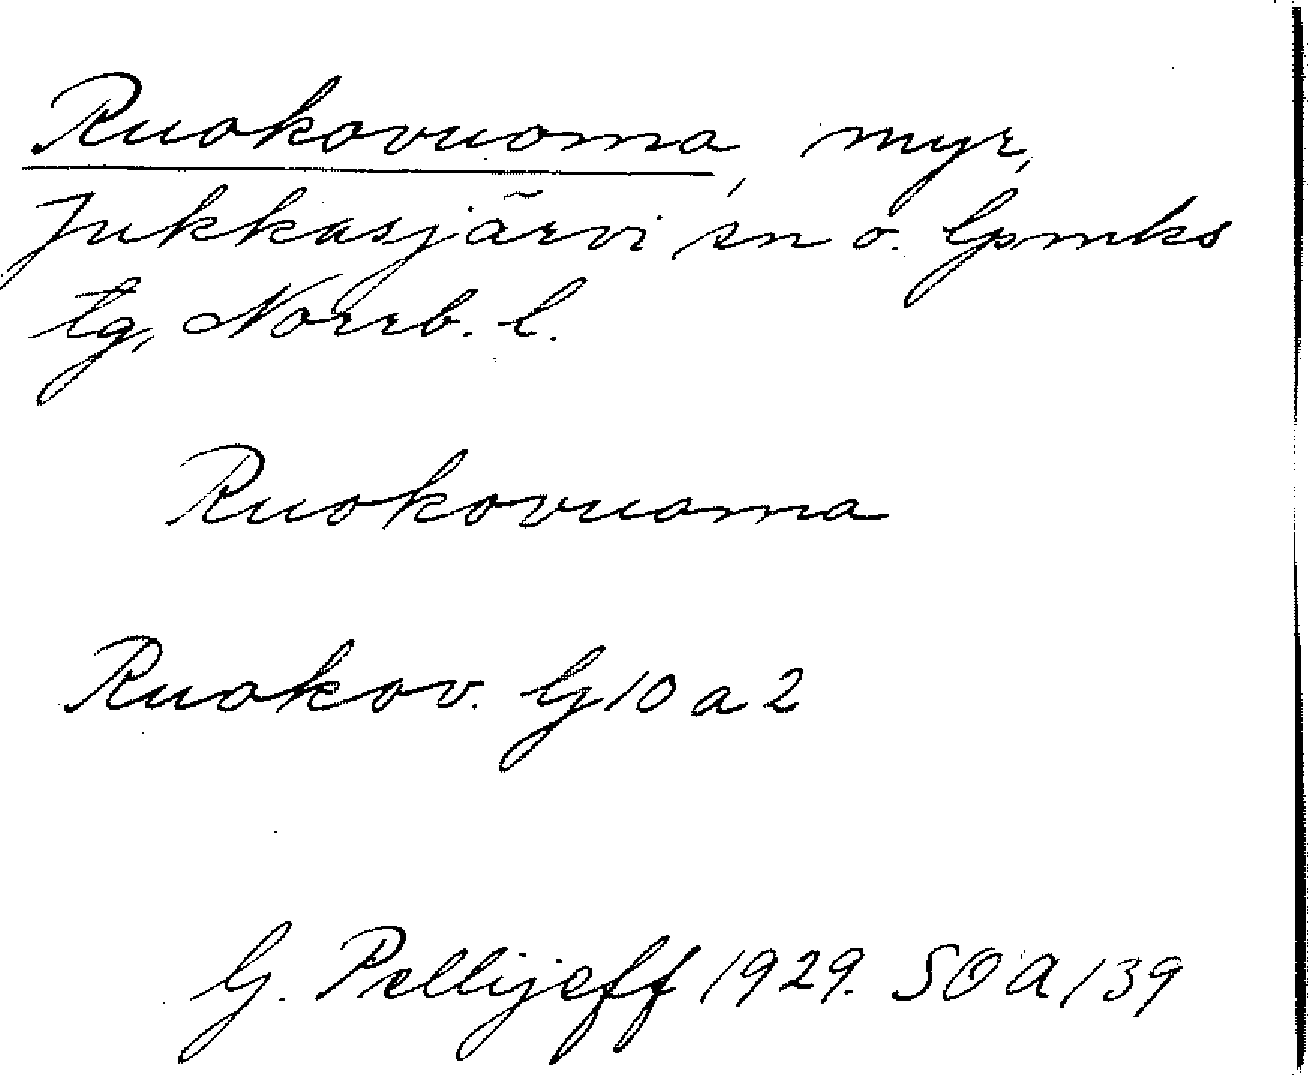 Ruokovuoma, myr,
Jukkasjärvi sn o. Lpmks
tg, Norrb. l.
Ruokovuoma
Ruokov. G 10 a 2
G. Pellijeff 1929. SOA/39